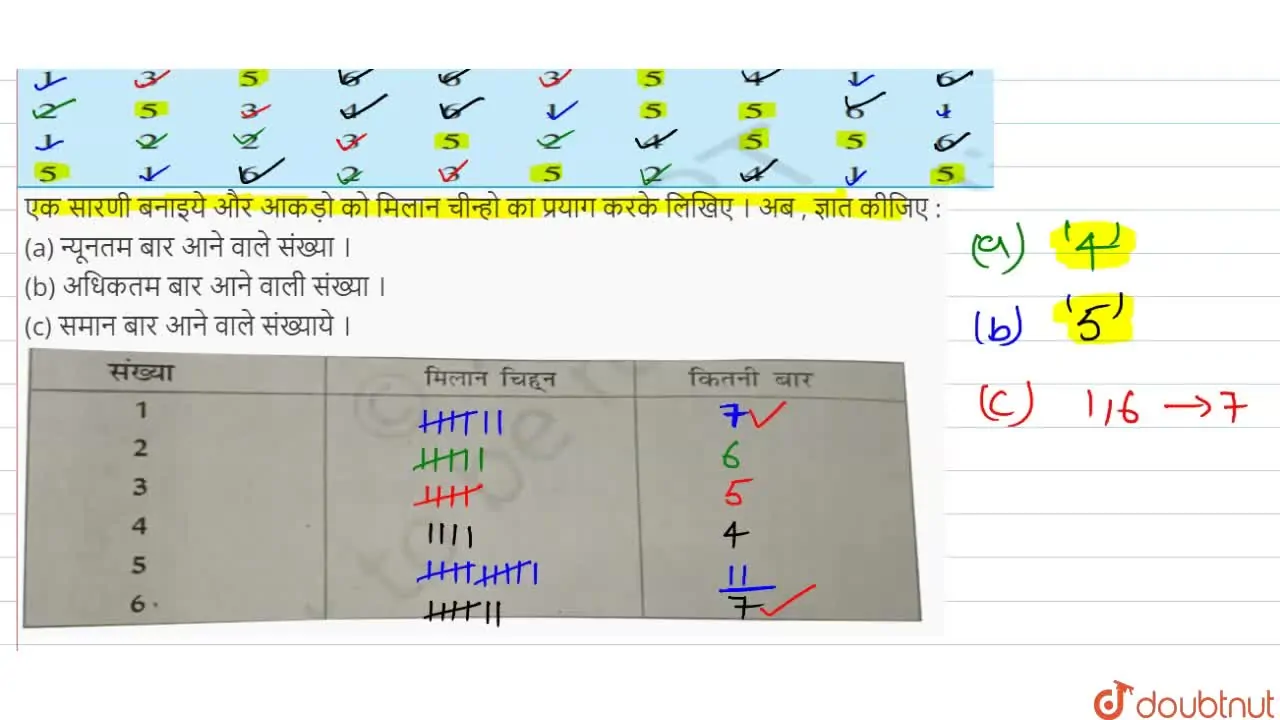 1 3 5 6 6 3 5 4 1 6
2 5 3 4 6 1 5 5 6 1
1 2 2 3 5 2 4 5 5 6
5 1 6 2 3 5 2 4 1 5
एक सारणी बनाइये और आकड़ो को मिलान चीन्हो का प्रयाग करके लिखिए । अब , ज्ञात कीजिए :
(a) न्यूनतम बार आने वाले संख्या ।
(b) अधिकतम बार आने वाली संख्या ।
(c) समान बार आने वाले संख्याये ।
(a) '4'
(b) '5'
(c) 1,6 → 7
संख्या मिलान चिह्न कितनी बार
1 7
2 6
3 5
4 4
5 11
6 7
doubtnut